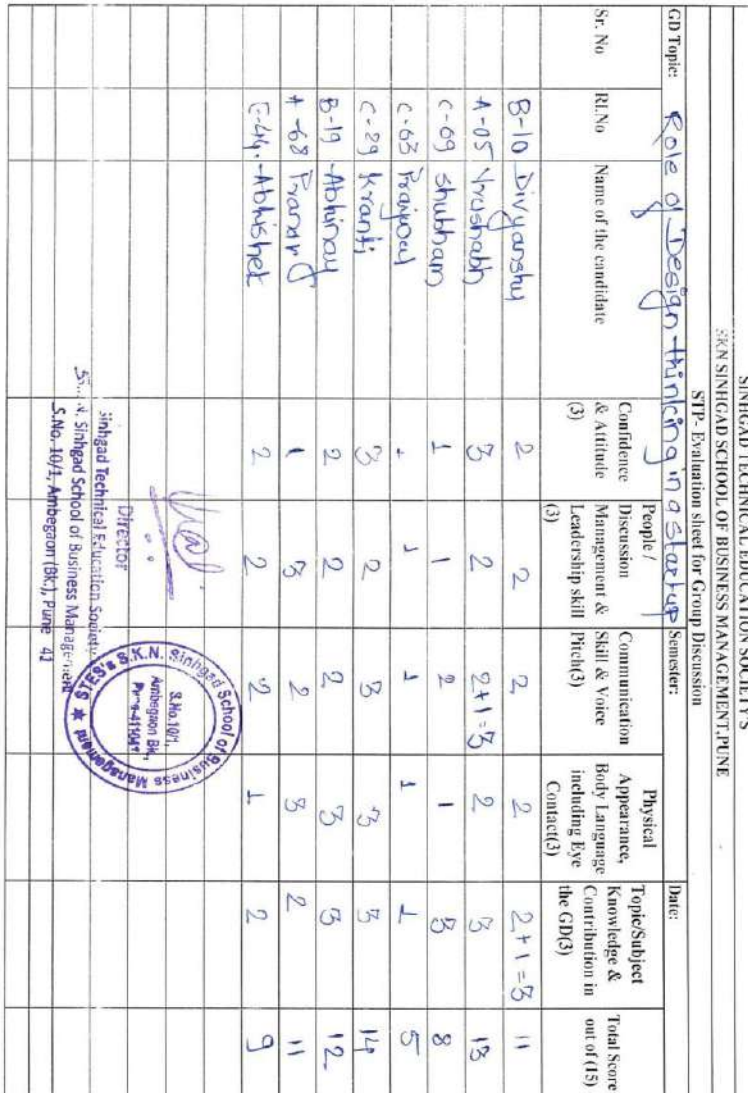 SINHGAD TECHNICAL EDUCATION SOCIETY'S
SKN SINHGAD SCHOOL OF BUSINESS MANAGEMENT,PUNE
STP- Evaluation sheet for Group Discussion
GD Topic: Role of Design-thinking in a startup Semester: Date:
Sr. No Rl.No Name of the candidate Confidence & Attitude (3) People / Discussion Management & Leadership skill (3) Communication Skill & Voice Pitch(3) Physical Appearance, Body Language including Eye Contact(3) Topic/Subject Knowledge & Contribution in the GD(3) Total Score out of (15)
B-10 Divyanshu 2 2 2 2 2+1=3 11
A-05 Vrushabh 3 2 2+1=3 2 3 13
C-69 Shubham 1 1 2 1 3 8
C-63 Prajwal 1 1 1 1 1 5
C-29 Kranti 3 2 3 3 3 14
B-19 Abhinay 2 2 2 3 3 12
A-68 1 3 2 3 2 11
Abhishek 2 2 2 1 2 9
Director
Sinhgad Technical Education Society
Sinhgad School of Business Management
S.No. 10/1, Ambegaon (Bk.), Pune 41
STES's S.K.N. Sinhgad School of Business Management
S.No.10/1,
Ambegaon Bk.,
Pune-411041